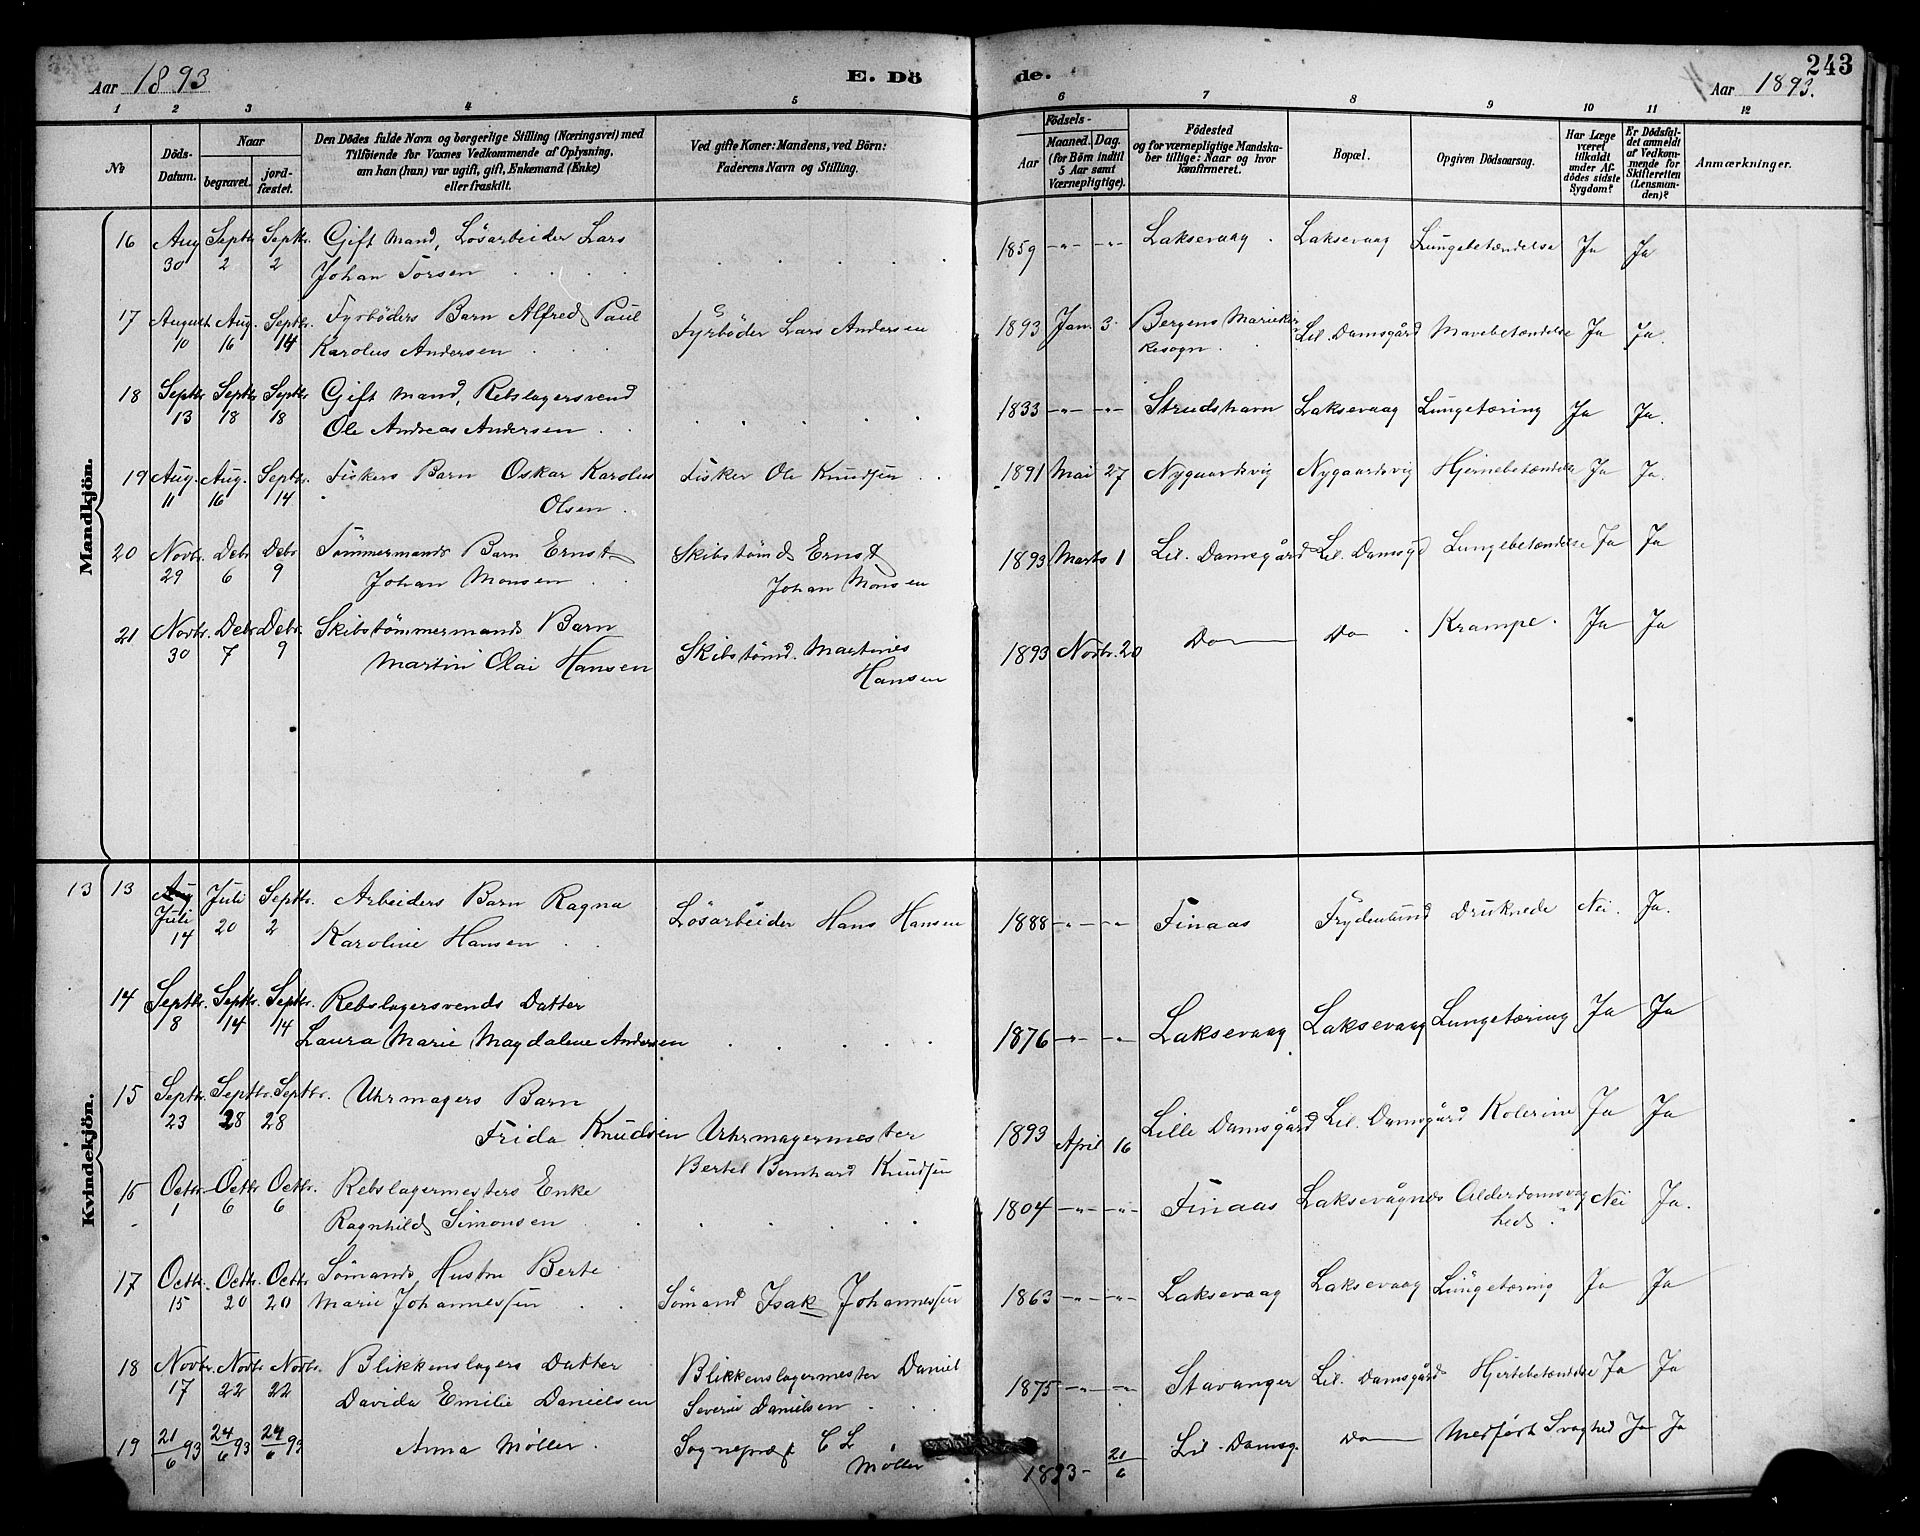 243
Aar 1893 E. Dö de. Aar 1893.
1 2 3 4 5 6 7 8 9 10 11 12
№
Döds-Datum.
Naar
begravet.
jord-fæstet.
Den Dödes fulde Navn og borgerlige Stilling (Næringsvei) med
Tilföiende for Voxnes Vedkommende af Oplysning,
om han (hun) var ugift, gift, Enkemand (Enke)
eller fraskilt.
Ved gifte Koner: Mandens, ved Börn:
Faderens Navn og Stilling.
Födsels-
Aar
Maaned. Dag.
(for Börn indtil
5 Aar samt
Værnepligtige).
Födested
og for værnepligtige Mandska-
ber tillige: Naar og hvor
konfirmeret.
Bopæl.
Opgiven Dödsaarsag.
Har Læge
været
tilkaldt
under Af-
dödes sidste
Sygdom?
Er Dödsfal-
det anmeldt
af Vedkom-
mende for
Skifteretten
(Lensman-
den)?
Anmærkninger.
Mandkjön.
16 Aug 30 Septbr 2 Septbr. 2 Gift Mand, Lösarbeider Lars
Johan Torsen 1859 -"- -"- Laksevaag. Laksevaag Lungebetændelse Ja Ja
17 August 10 Aug. 16 Septbr. 14 Fyrböders Barn Alfred Paul
Karolus Andersen Fyrböder Lars Andersen 1893 Jan. 3 Bergens Mariekir
kesogn. Lil. Damsgård Mavebetændelse Ja Ja.
18 Septbr 13 Septbr 18 Septbr. 18 Gift Mand, Rebslagersvend
Ole Andreas Andersen 1833 -"- -"- Strudshavn Laksevaag Lungetæring Ja Ja.
19 Aug. 11 Aug. 16 Septbr. 14 Fiskers Barn Oskar Karolus
Olsen. Fisker Ole Knudsen 1891 Mai 27 Nygaardsvig Nygaardsvig Hjernebetændelse Ja Ja.
20 Novbr. 29 Debr 6 Debr 9 Tömmermands Barn Ernst
Johan Monsen Skibstömd Ernst
Johan Monsen 1893 Marts 1 Lil. Damsgård Lil. Damsgd Lungebetændelse Ja Ja
21 Novbr. 30 Debr 7 Debr. 9 Skibstömmermands Barn
Martin Olai Hansen Skibstömd. Martines
Hansen 1893 Novbr. 20 Do Do Krampe. Ja Ja
Kvindekjön.
13 13 Juli 14 Juli 20 Septbr. 2 Arbeiders Barn Ragna
Karoline Hansen Lösarbeider Hans Hansen 1888 -"- -"- Finaas Frydenlund Druknede Nei. Ja.
14 Septbr. 8 Septbr. 14 Septbr. 14 Rebslagersvends Datter
Laura Marie Magdalene Andersen 1876 -"- -"- Laksevaag Laksevaag Lungetæring Ja Ja
15 Septbr. 23 Septbr. 28 Septbr. 28 Uhrmagers Barn
Frida Knudsen Uhrmagermester
Bertel Bernhard Knudsen 1893 April 16 Lille Damsgård Lil. Damsgård Kolerine Ja Ja
16 Octbr. 1 Octbr 6 Octbr. 6 Rebslagermesters Enke
Ragnhild Simonsen 1804 -"- -"- Finaas Laksevågnes Alderdomsvag
hed. Nei Ja.
17 Octbr. 15 Octbr. 20 Octbr. 20 Sömands Hustru Berte
Marie Johannessen Sömand Isak Johannessen 1863 -"- -"- Laksevaag Laksevaag Lungetæring Ja Ja
18 Novbr. 17 Novbr 22 Novbr. 22 Blikkenslagers Datter
Davida Emilie Danielsen Blikkenslagermester Daniel
Severin Danielsen 1875 -"- -"- Stavanger Lil. Damsgård Hjertebetændelse Ja Ja
19 21/6 93 24/6 93 24/6 93 Anna Möller. Sognepræst C L
Möller 1893- 21/6 Lil. Damsg. Do Medfödt Svaghed Ja Ja